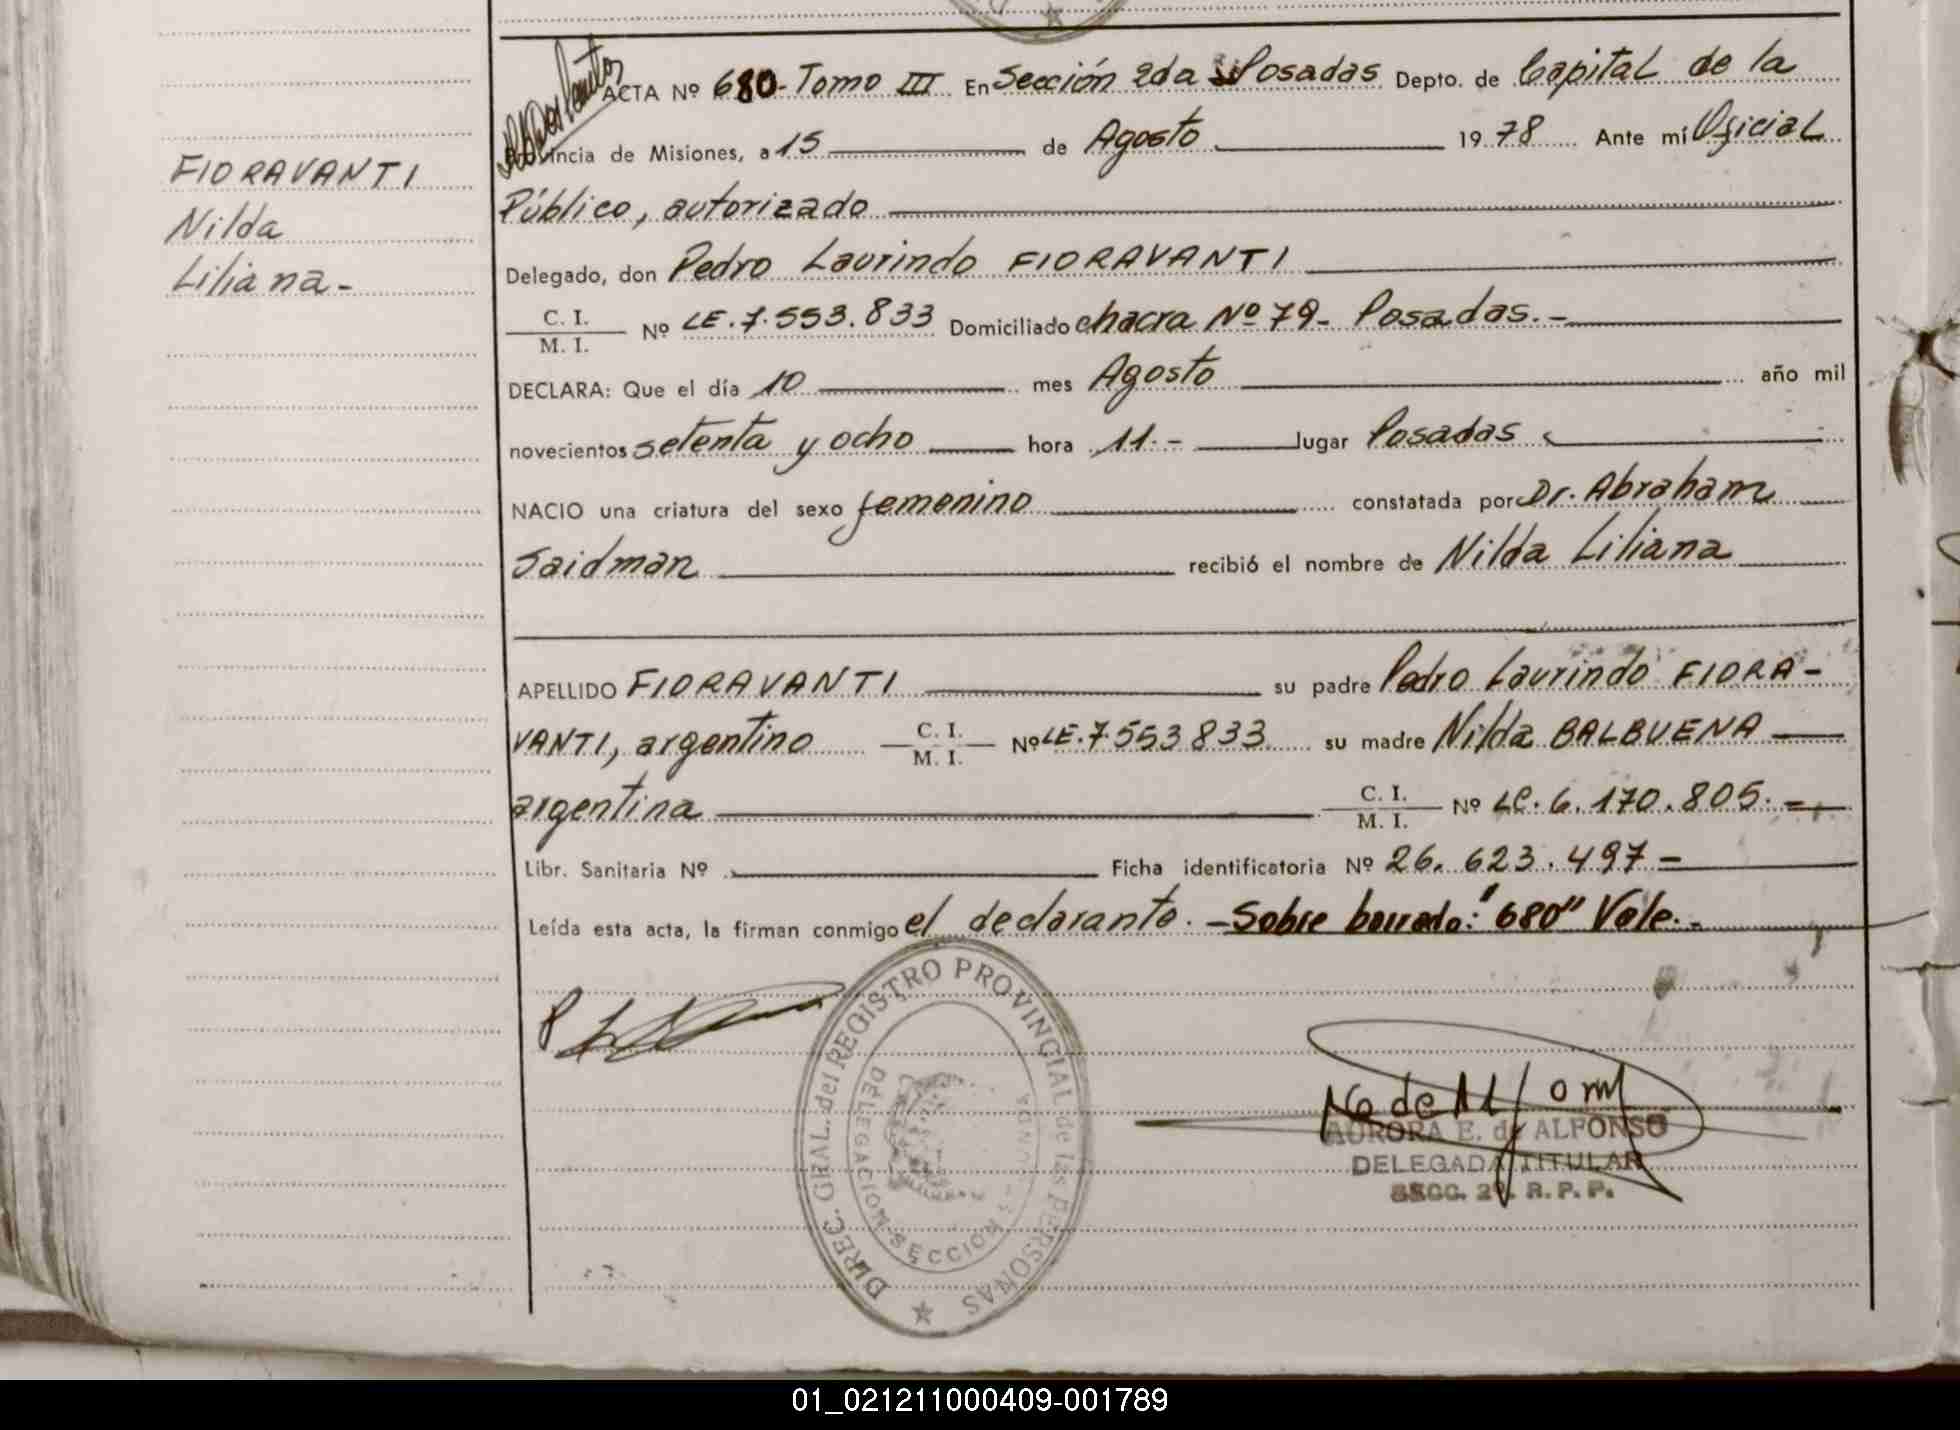 FIORAVANTI
Nilda
Liliana-
ACTA Nº 680- Tomo III En Sección 2da Posadas Depto. de Capital de la
Provincia de Misiones, a 15 de Agosto 1978 Ante mí Oficial
Público, autorizado
Delegado, don Pedro Laurindo FIORAVANTI
C. I.
M. I. Nº LE. 7.553.833 Domiciliado chacra Nº 79- Posadas.-
DECLARA: Que el día 10 mes Agosto año mil
novecientos setenta y ocho hora 11.- lugar Posadas
NACIO una criatura del sexo femenino constatada por Dr. Abraham
Saidman recibió el nombre de Nilda Liliana
APELLIDO FIORAVANTI su padre Pedro Laurindo FIORA-
VANTI, argentino C. I. M. I. Nº LE. 7.553.833 su madre Nilda BALBUENA
argentina C. I. M. I. Nº LC. 6.170.805.-
Libr. Sanitaria Nº Ficha identificatoria Nº 26.623.497-
Leída esta acta, la firman conmigo el declarante.-Sobre borrado: "680" Vale.-
DIREC. GRAL. del REGISTRO PROVINCIAL de las PERSONAS
DELEGACION-SECCION
AURORA E. de ALFONSO
DELEGADA TITULAR
SECC. 2ª. R. P. P.
01_021211000409-001789